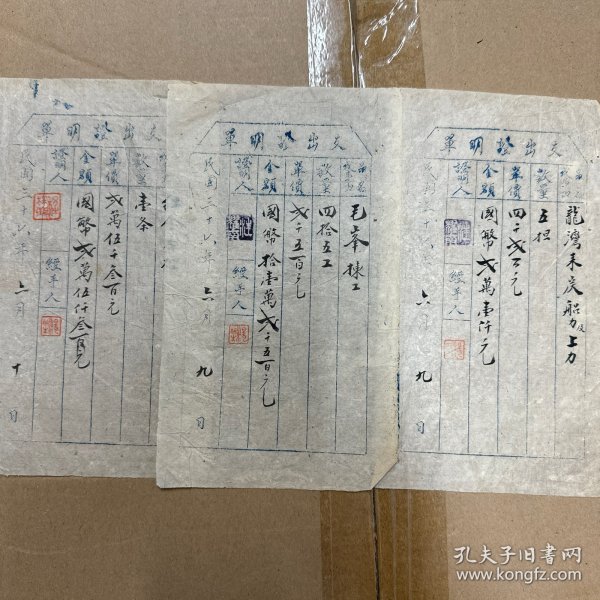 支出證明單
數量
單價
金額
證明人
經手人
龍灣未炭船力及上力
五担
四千弍百元
國幣弍萬壹仟元
六月
九
日
支出證明單
數量
單價
金額
證明人
經手人
毛峯揀工
四拾五工
弍千五百元
國幣拾壹萬弍千五百元
民國三十六年
六月
九
日
支出證明單
數量
單價
金額
證明人
經手人
壹条
弍萬伍千叁百元
國幣弍萬伍仟叁百元
民國三十六年
六月
十
日
孔夫子旧书网
www.kongfz.com